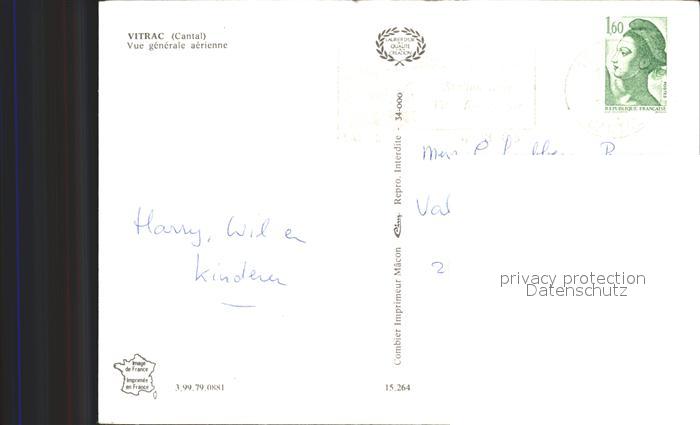 VITRAC (Cantal)
Vue générale aérienne
LAURIER D'OR
QUALITÉ
CRÉATION
1,60
POSTES
REPUBLIQUE FRANÇAISE
Combier Imprimeur Mâcon Cim Repro. Interdite - 34-000
Val
2
Harry, Wil en
kinderen
privacy protection
Datenschutz
Image
de France
Imprimée
en France
3.99.79.0881
15.264